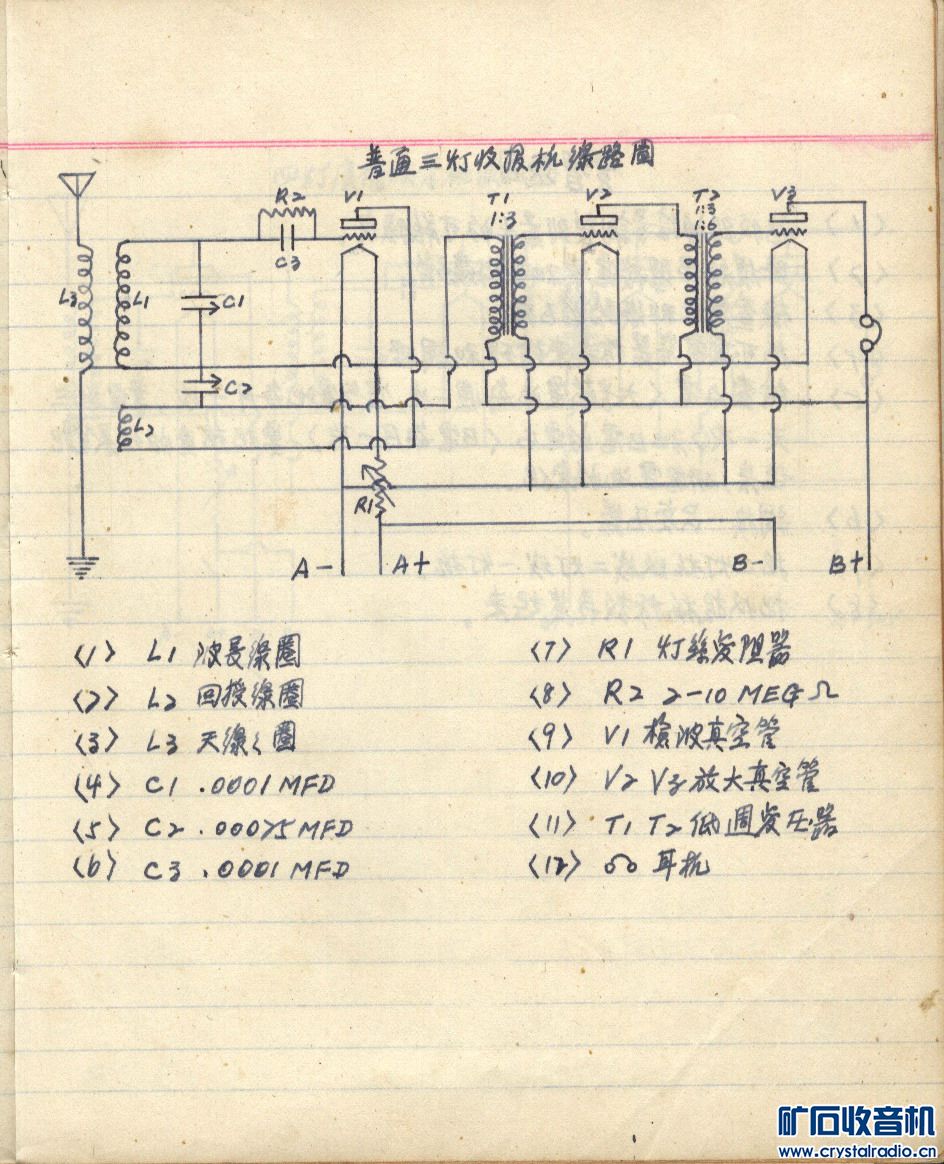 普通三灯收报机線路圖
R2 V1 T1 V2 T2 V3
1:3 1:3
1:6
C3
L3 L1 C1
C2
L2
R1
A- A+ B- B+
(1) L1 波長線圈
(2) L2 回授線圈
(3) L3 天線々圈
(4) C1 .0001 MFD
(5) C2 .00025 MFD
(6) C3 .0001 MFD
(7) R1 灯絲变阻器
(8) R2 2-10 MEG Ω
(9) V1 檢波真空管
(10) V2 V3 放大真空管
(11) T1 T2 低週变压器
(12) 耳机
矿石收音机
www.crystalradio.cn